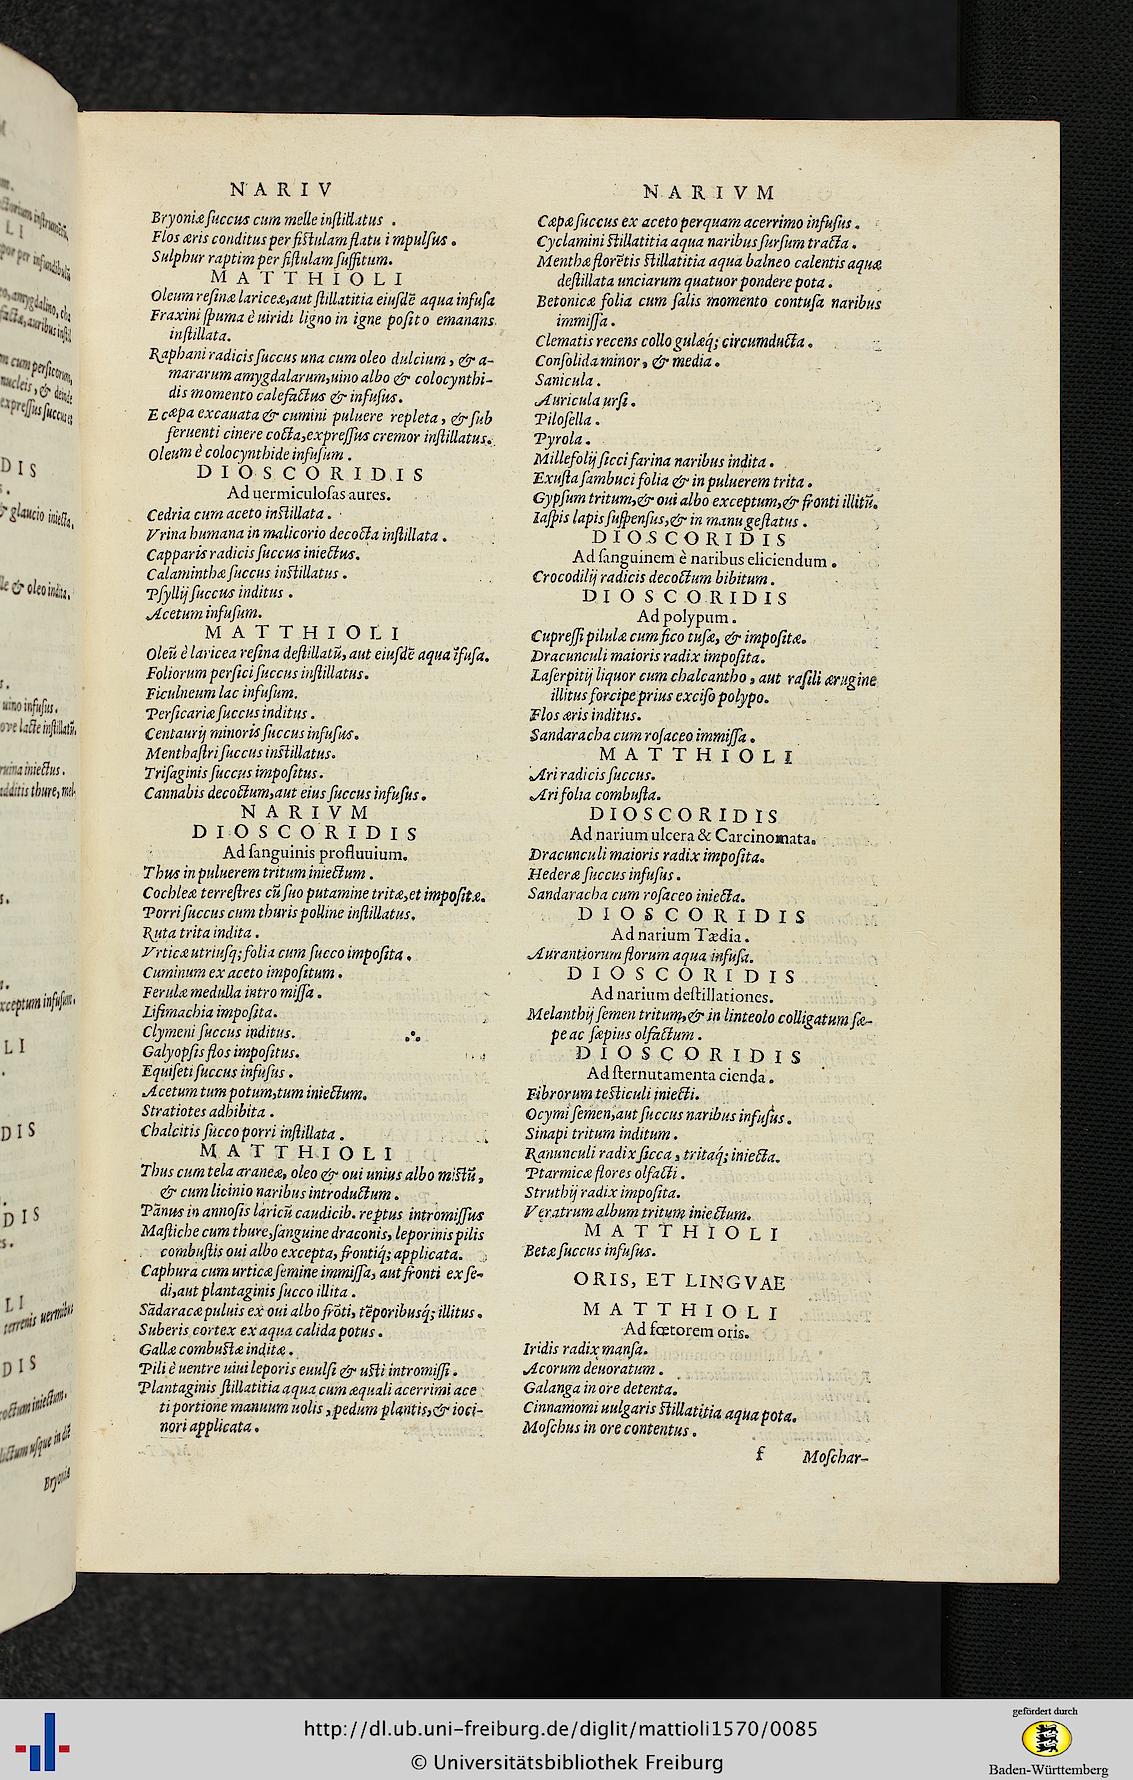 NARIV
Bryoniæ ſuccus cum melle inſtillatus .
Flos æris conditus per fiſtulam flatu impulſus .
Sulphur raptim per fiſtulam ſuffitum.
MATTHIOLI
Oleum reſinæ lariceæ, aut ſtillatitia eiuſdẽ aqua infuſa
Fraxini ſpuma è uiridi ligno in igne poſito emanans
inſtillata.
Raphani radicis ſuccus una cum oleo dulcium , & a-
mararum amygdalarum, uino albo & colocynthi-
dis momento calefactus & infuſus.
E cæpa excauata & cumini puluere repleta , & ſub
feruenti cinere cocta, expreſſus cremor inſtillatus.
Oleum è colocynthide infuſum .
DIOSCORIDIS
Ad uermiculoſas aures.
Cedria cum aceto inſtillata .
Vrina humana in malicorio decocta inſtillata .
Capparis radicis ſuccus iniectus.
Calaminthæ ſuccus inſtillatus .
Pſyllij ſuccus inditus .
Acetum infuſum.
MATTHIOLI
Oleũ è laricea reſina deſtillatũ, aut eiuſdẽ aqua ĩfuſa.
Foliorum perſici ſuccus inſtillatus.
Ficulneum lac infuſum.
Perſicariæ ſuccus inditus .
Centaurij minoris ſuccus infuſus.
Menthaſtri ſuccus inſtillatus.
Triſaginis ſuccus impoſitus.
Cannabis decoctum, aut eius ſuccus infuſus .
NARIVM
DIOSCORIDIS
Ad ſanguinis profluuium.
Thus in puluerem tritum iniectum .
Cochleæ terreſtres cũ ſuo putamine tritæ, et impoſitæ.
Porri ſuccus cum thuris polline inſtillatus.
Ruta trita indita .
Vrticæ utriuſq; folia cum ſucco impoſita .
Cuminum ex aceto impoſitum .
Ferulæ medulla intro miſſa .
Liſimachia impoſita.
Clymeni ſuccus inditus.
Galyopſis flos impoſitus.
Equiſeti ſuccus infuſus .
Acetum tum potum, tum iniectum.
Stratiotes adhibita .
Chalcitis ſucco porri inſtillata .
MATTHIOLI
Thus cum tela araneæ, oleo & oui unius albo miſtũ ,
& cum licinio naribus introductum .
Pãnus in annoſis laricũ caudicib. reptus intromiſſus
Maſtiche cum thure, ſanguine draconis, leporinis pilis
combuſtis oui albo excepta, frontiq; applicata.
Caphura cum urticæ ſemine immiſſa, aut fronti ex ſe-
di, aut plantaginis ſucco illita .
Sãdaracæ puluis ex oui albo frõti, tẽporibusq; illitus .
Suberis cortex ex aqua calida potus .
Gallæ combuſtæ inditæ .
Pili è uentre uiui leporis euulſi & uſti intromiſſi .
Plantaginis ſtillatitia aqua cum æquali acerrimi ace
ti portione manuum uolis , pedum plantis, & ioci-
nori applicata .
NARIVM
Cæpæ ſuccus ex aceto perquam acerrimo infuſus .
Cyclamini ſtillatitia aqua naribus ſurſum tracta .
Menthæ florẽtis ſtillatitia aqua balneo calentis aquæ
deſtillata unciarum quatuor pondere pota .
Betonicæ folia cum ſalis momento contuſa naribus
immiſſa .
Clematis recens collo gulæq; circumducta .
Conſolida minor , & media .
Sanicula .
Auricula urſi .
Piloſella .
Pyrola .
Millefolij ſicci farina naribus indita .
Exuſta ſambuci folia & in puluerem trita .
Gypſum tritum, & oui albo exceptum, & fronti illitũ.
Iaſpis lapis ſuſpenſus, & in manu geſtatus .
DIOSCORIDIS
Ad ſanguinem è naribus eliciendum .
Crocodilij radicis decoctum bibitum .
DIOSCORIDIS
Ad polypum .
Cupreſſi pilulæ cum fico tuſæ, & impoſitæ.
Dracunculi maioris radix impoſita.
Laſerpitij liquor cum chalcantho , aut raſili ærugine
illitus forcipe prius exciſo polypo.
Flos æris inditus.
Sandaracha cum roſaceo immiſſa .
MATTHIOLI
Ari radicis ſuccus.
Ari folia combuſta.
DIOSCORIDIS
Ad narium ulcera & Carcinomata.
Dracunculi maioris radix impoſita.
Hederæ ſuccus infuſus .
Sandaracha cum roſaceo iniecta.
DIOSCORIDIS
Ad narium Tædia .
Aurantiorum florum aqua infuſa.
DIOSCORIDIS
Ad narium deſtillationes.
Melanthij ſemen tritum, & in linteolo colligatum ſæ-
pe ac ſæpius olfactum .
DIOSCORIDIS
Ad ſternutamenta cienda .
Fibrorum teſticuli iniecti.
Ocymi ſemen, aut ſuccus naribus infuſus .
Sinapi tritum inditum .
Ranunculi radix ſicca , tritaq́; iniecta.
Ptarmicæ flores olfacti .
Struthij radix impoſita.
Veratrum album tritum iniectum.
MATTHIOLI
Betæ ſuccus infuſus.
ORIS, ET LINGVAE
MATTHIOLI
Ad fœtorem oris.
Iridis radix manſa.
Acorum deuoratum .
Galanga in ore detenta.
Cinnamomi uulgaris ſtillatitia aqua pota.
Moſchus in ore contentus .
f Moſchar-
http://dl.ub.uni-freiburg.de/diglit/mattioli1570/0085
© Universitätsbibliothek Freiburg
gefördert durch
Baden-Württemberg